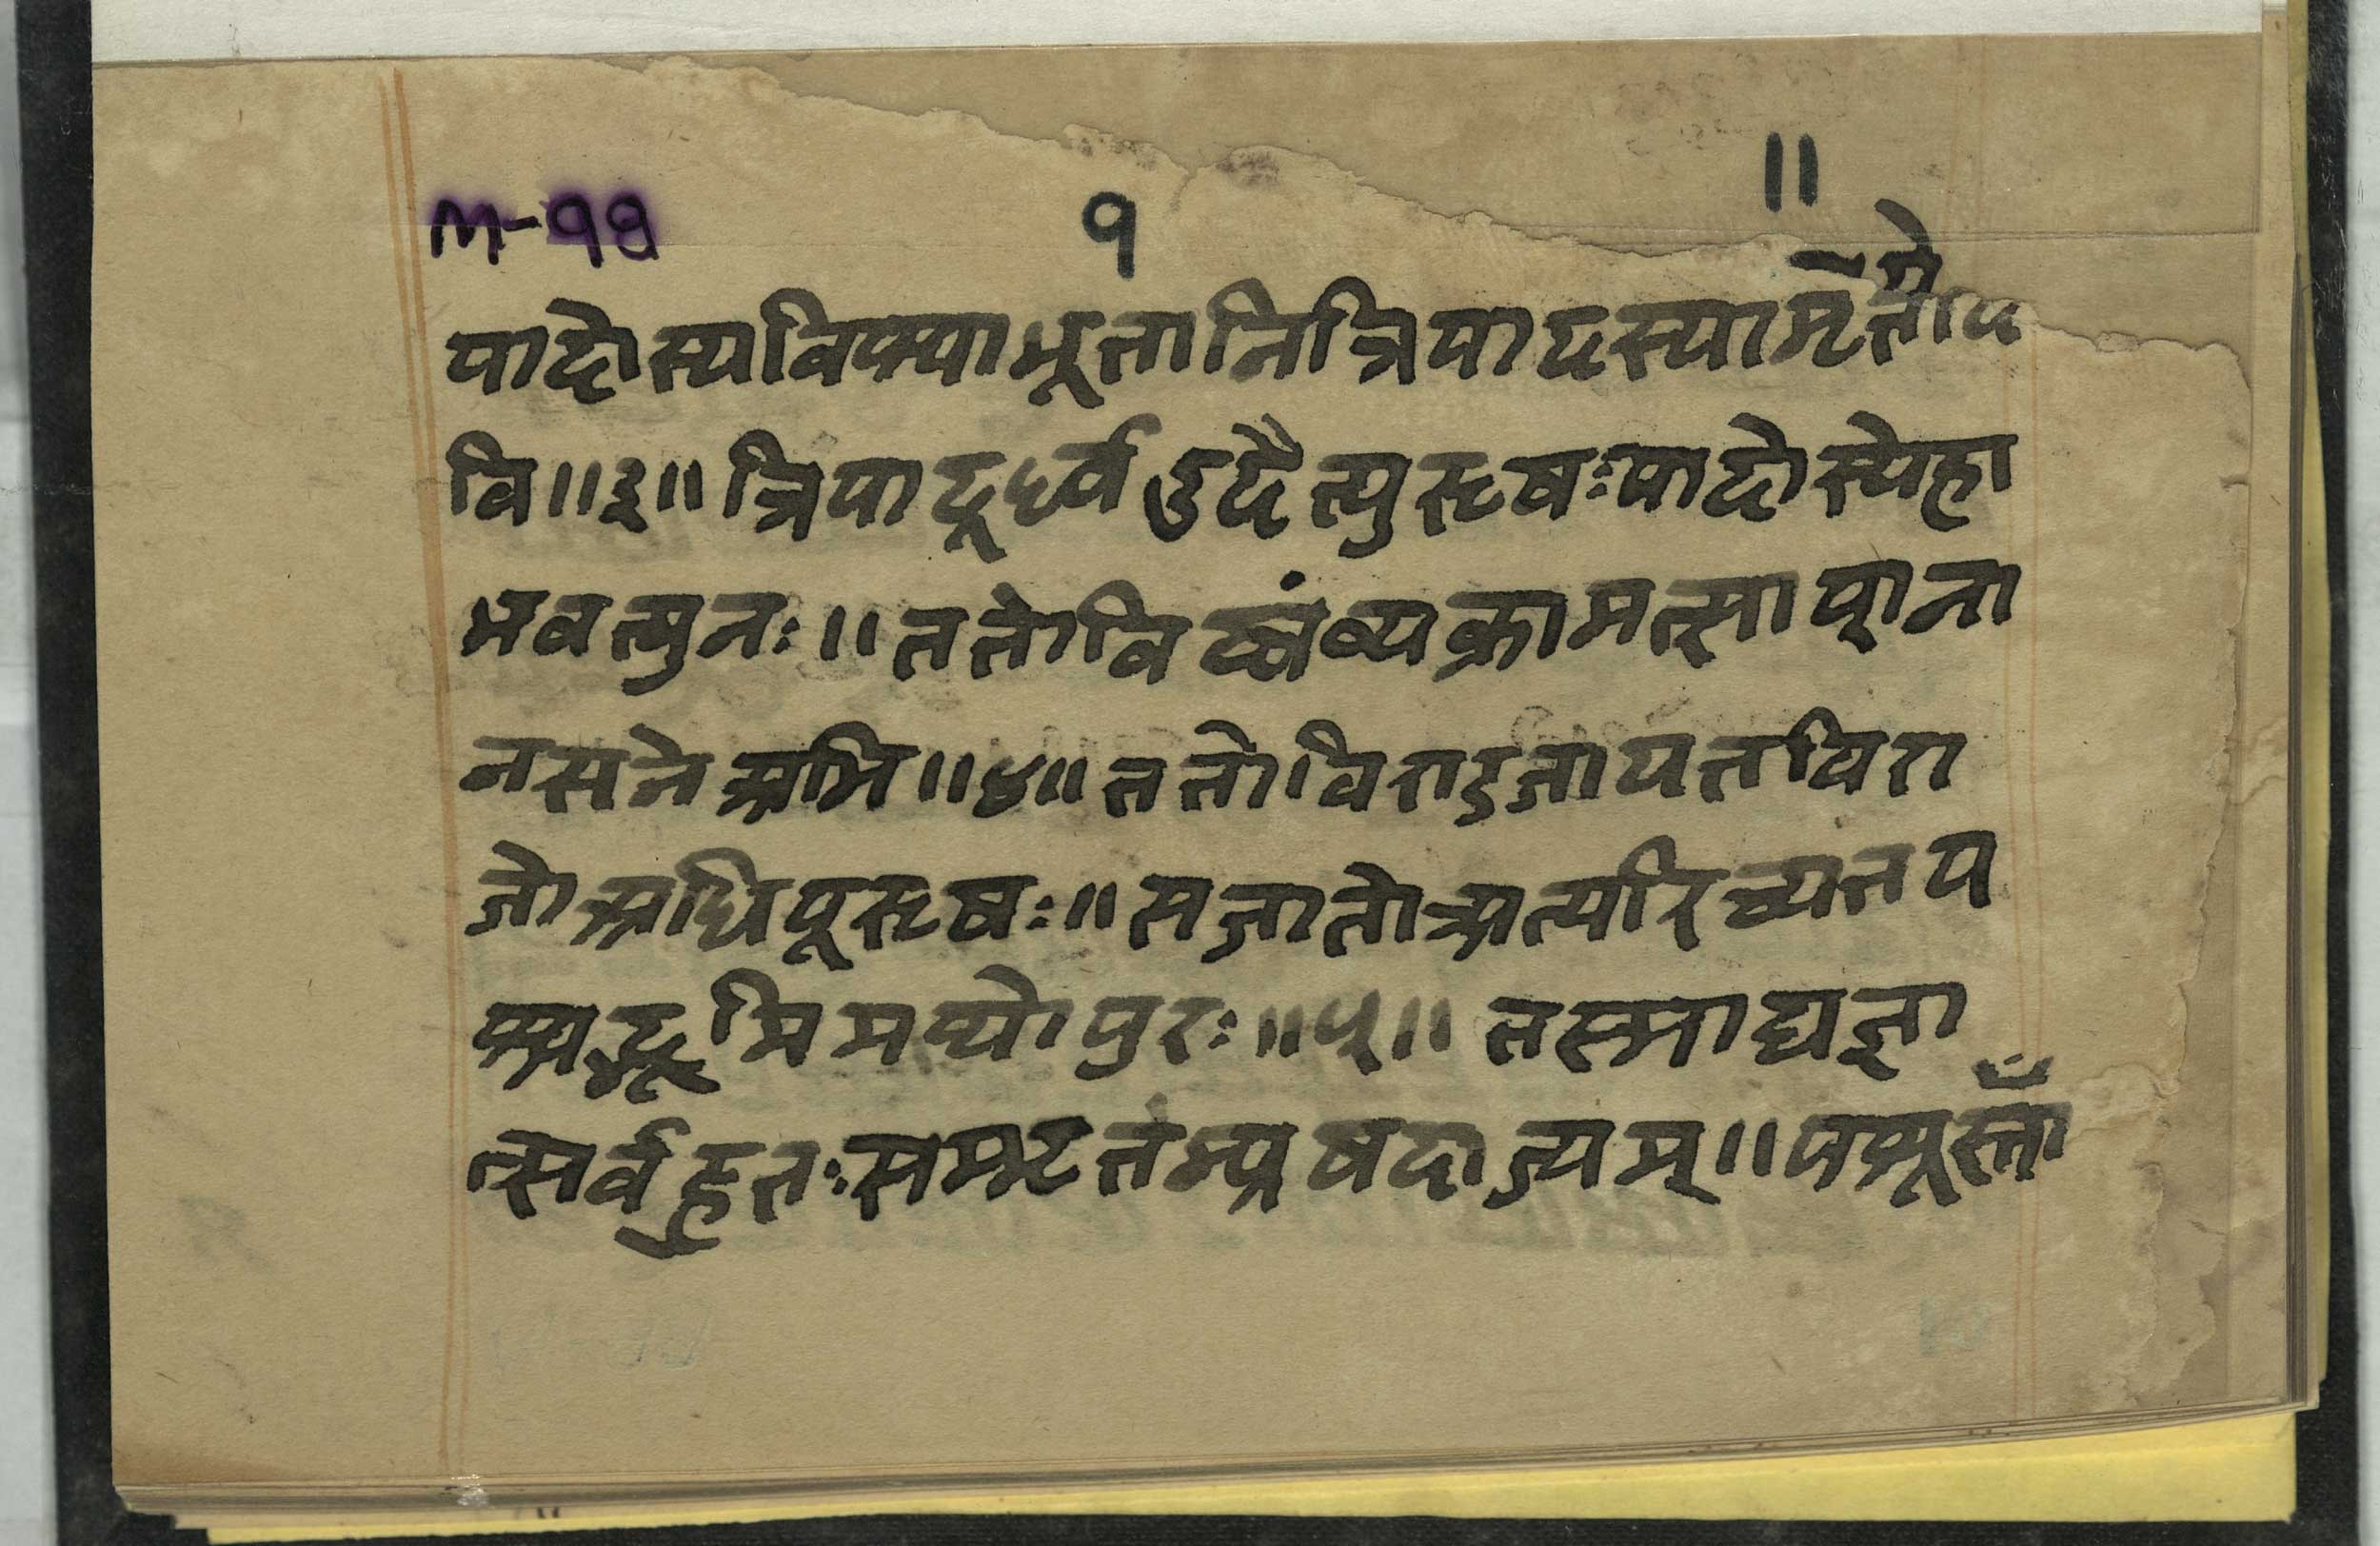 M-११
१
॥
पादोस्यविश्वाभूतानित्रिपादस्यामृतंदि
वि॥३॥त्रिपादूर्ध्वउदैत्पुरुषःपादोस्येहा
भवत्पुनः॥ततोविष्वंव्यक्रामत्साशना
नशनेअभि॥४॥ततोविराडजायतविरा
जोअधिपूरुषः॥सजातोअत्यरिच्यतप
श्चाद्भूमिमथोपुरः॥५॥तस्माद्यज्ञा
त्सर्वहुतःसम्भृतंम्पृषदाज्यम्॥पशूस्ताँ